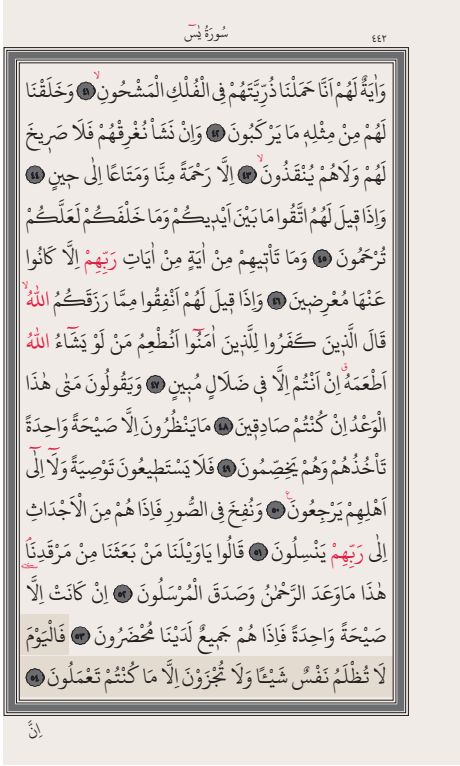 سُورَةُ يٰسٓ ٤٤٢
وَاٰيَةٌ لَهُمْ اَنَّا حَمَلْنَا ذُرِّيَّتَهُمْ فِي الْفُلْكِ الْمَشْحُونِۙ ﴿٤١﴾ وَخَلَقْنَا
لَهُمْ مِنْ مِثْلِهٖ مَا يَرْكَبُونَ ﴿٤٢﴾ وَاِنْ نَشَأْ نُغْرِقْهُمْ فَلَا صَرٖيخَ
لَهُمْ وَلَاهُمْ يُنْقَذُونَۙ ﴿٤٣﴾ اِلَّا رَحْمَةً مِنَّا وَمَتَاعًا اِلٰى حٖينٍ ﴿٤٤﴾
وَاِذَا قٖيلَ لَهُمُ اتَّقُوا مَا بَيْنَ اَيْدٖيكُمْ وَمَا خَلْفَكُمْ لَعَلَّكُمْ
تُرْحَمُونَ ﴿٤٥﴾ وَمَا تَأْتٖيهِمْ مِنْ اٰيَةٍ مِنْ اٰيَاتِ رَبِّهِمْ اِلَّا كَانُوا
عَنْهَا مُعْرِضٖينَ ﴿٤٦﴾ وَاِذَا قٖيلَ لَهُمْ اَنْفِقُوا مِمَّا رَزَقَكُمُ اللّٰهُۙ
قَالَ الَّذٖينَ كَفَرُوا لِلَّذٖينَ اٰمَنُٓوا اَنُطْعِمُ مَنْ لَوْ يَشَٓاءُ اللّٰهُ
اَطْعَمَهُۗ اِنْ اَنْتُمْ اِلَّا فٖي ضَلَالٍ مُبٖينٍ ﴿٤٧﴾ وَيَقُولُونَ مَتٰى هٰذَا
الْوَعْدُ اِنْ كُنْتُمْ صَادِقٖينَ ﴿٤٨﴾ مَايَنْظُرُونَ اِلَّا صَيْحَةً وَاحِدَةً
تَأْخُذُهُمْ وَهُمْ يَخِصِّمُونَ ﴿٤٩﴾ فَلَا يَسْتَطٖيعُونَ تَوْصِيَةً وَلَٓا اِلٰٓى
اَهْلِهِمْ يَرْجِعُونَࣖ ﴿٥٠﴾ وَنُفِخَ فِي الصُّورِ فَاِذَا هُمْ مِنَ الْاَجْدَاثِ
اِلٰى رَبِّهِمْ يَنْسِلُونَ ﴿٥١﴾ قَالُوا يَاوَيْلَنَا مَنْ بَعَثَنَا مِنْ مَرْقَدِنَاۢ
هٰذَا مَاوَعَدَ الرَّحْمٰنُ وَصَدَقَ الْمُرْسَلُونَ ﴿٥٢﴾ اِنْ كَانَتْ اِلَّا
صَيْحَةً وَاحِدَةً فَاِذَا هُمْ جَمٖيعٌ لَدَيْنَا مُحْضَرُونَ ﴿٥٣﴾ فَالْيَوْمَ
لَا تُظْلَمُ نَفْسٌ شَيْـًٔا وَلَا تُجْزَوْنَ اِلَّا مَا كُنْتُمْ تَعْمَلُونَ ﴿٥٤﴾
اِنَّ